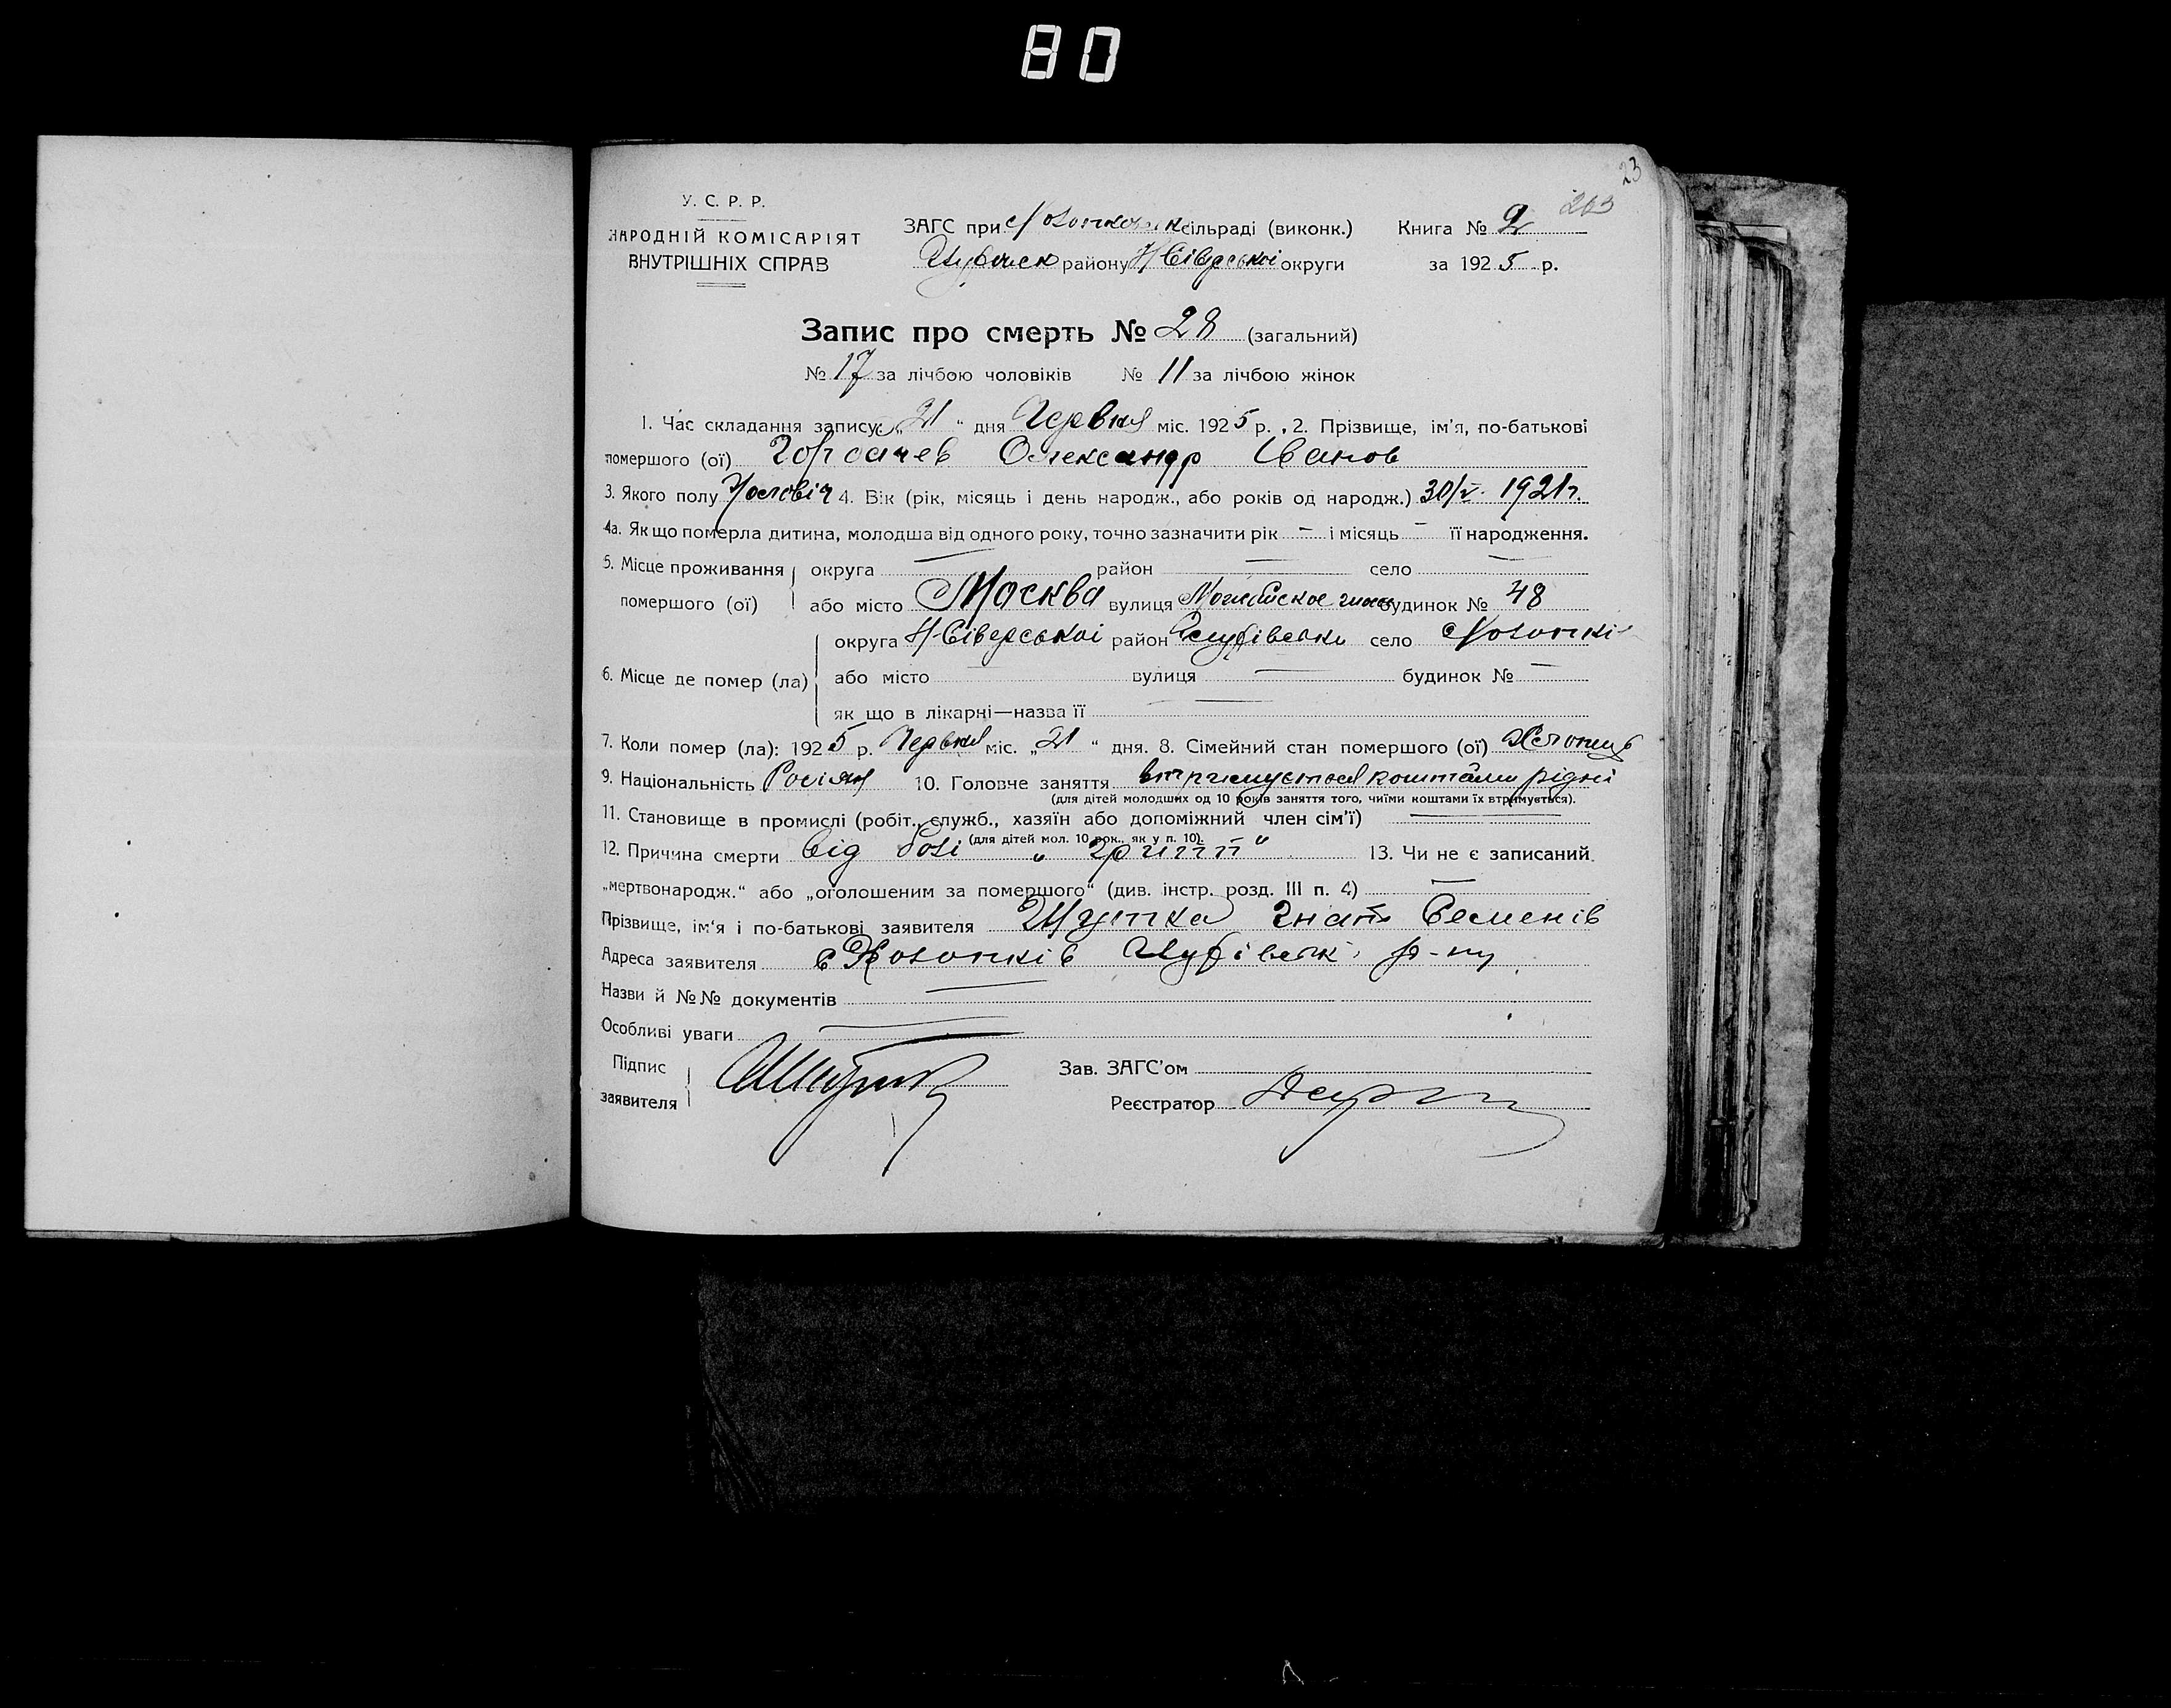 80
23
203
У. С. Р. Р.
НАРОДНІЙ КОМІСАРІЯТ
ВНУТРІШНІХ СПРАВ
ЗАГС при сільраді (виконк.)
району Н Сіверської округи
Книга № 2
за 1925 р.
Запис про смерть № 28 (загальний)
№ 17 за лічбою чоловіків № 11 за лічбою жінок
1. Час складання запису „21“ дня Червня міс. 1925 р. 2. Прізвище, ім'я, по-батькові
помершого (ої) Горбачев Олександр Іванов
3. Якого полу Чоловіч 4. Вік (рік, місяць і день народж., або років од народж.) 30/V. 1921 г.
4а. Як що померла дитина, молодша від одного року, точно зазначити рік — і місяць — її народження.
5. Місце проживання округа — район — село —
помершого (ої) або місто Москва вулиця будинок № 48
округа Н-Сіверської район село
6. Місце де помер (ла) або місто — вулиця — будинок № —
як що в лікарні—назва її —
7. Коли помер (ла): 1925 р. Червня міс. „21“ дня. 8. Сімейний стан помершого (ої)
9. Національність Росіян 10. Головче заняття втримується коштами рідні
(для дітей молодших од 10 років заняття того, чиїми коштами їх втримується).
11. Становище в промислі (робіт., служб., хазяїн або допоміжний член сім'ї) —
(для дітей мол. 10 рок., як у п. 10).
12. Причина смерти від „грипп“ 13. Чи не є записаний
„мертвонародж.“ або „оголошеним за помершого“ (див. інстр. розд. III п. 4) —
Прізвище, ім'я і по-батькові заявителя Гнат Семенів
Адреса заявителя с р-ну
Назви й №№ документів —
Особливі уваги —
Підпис
заявителя
Зав. ЗАГС'ом
Реєстратор